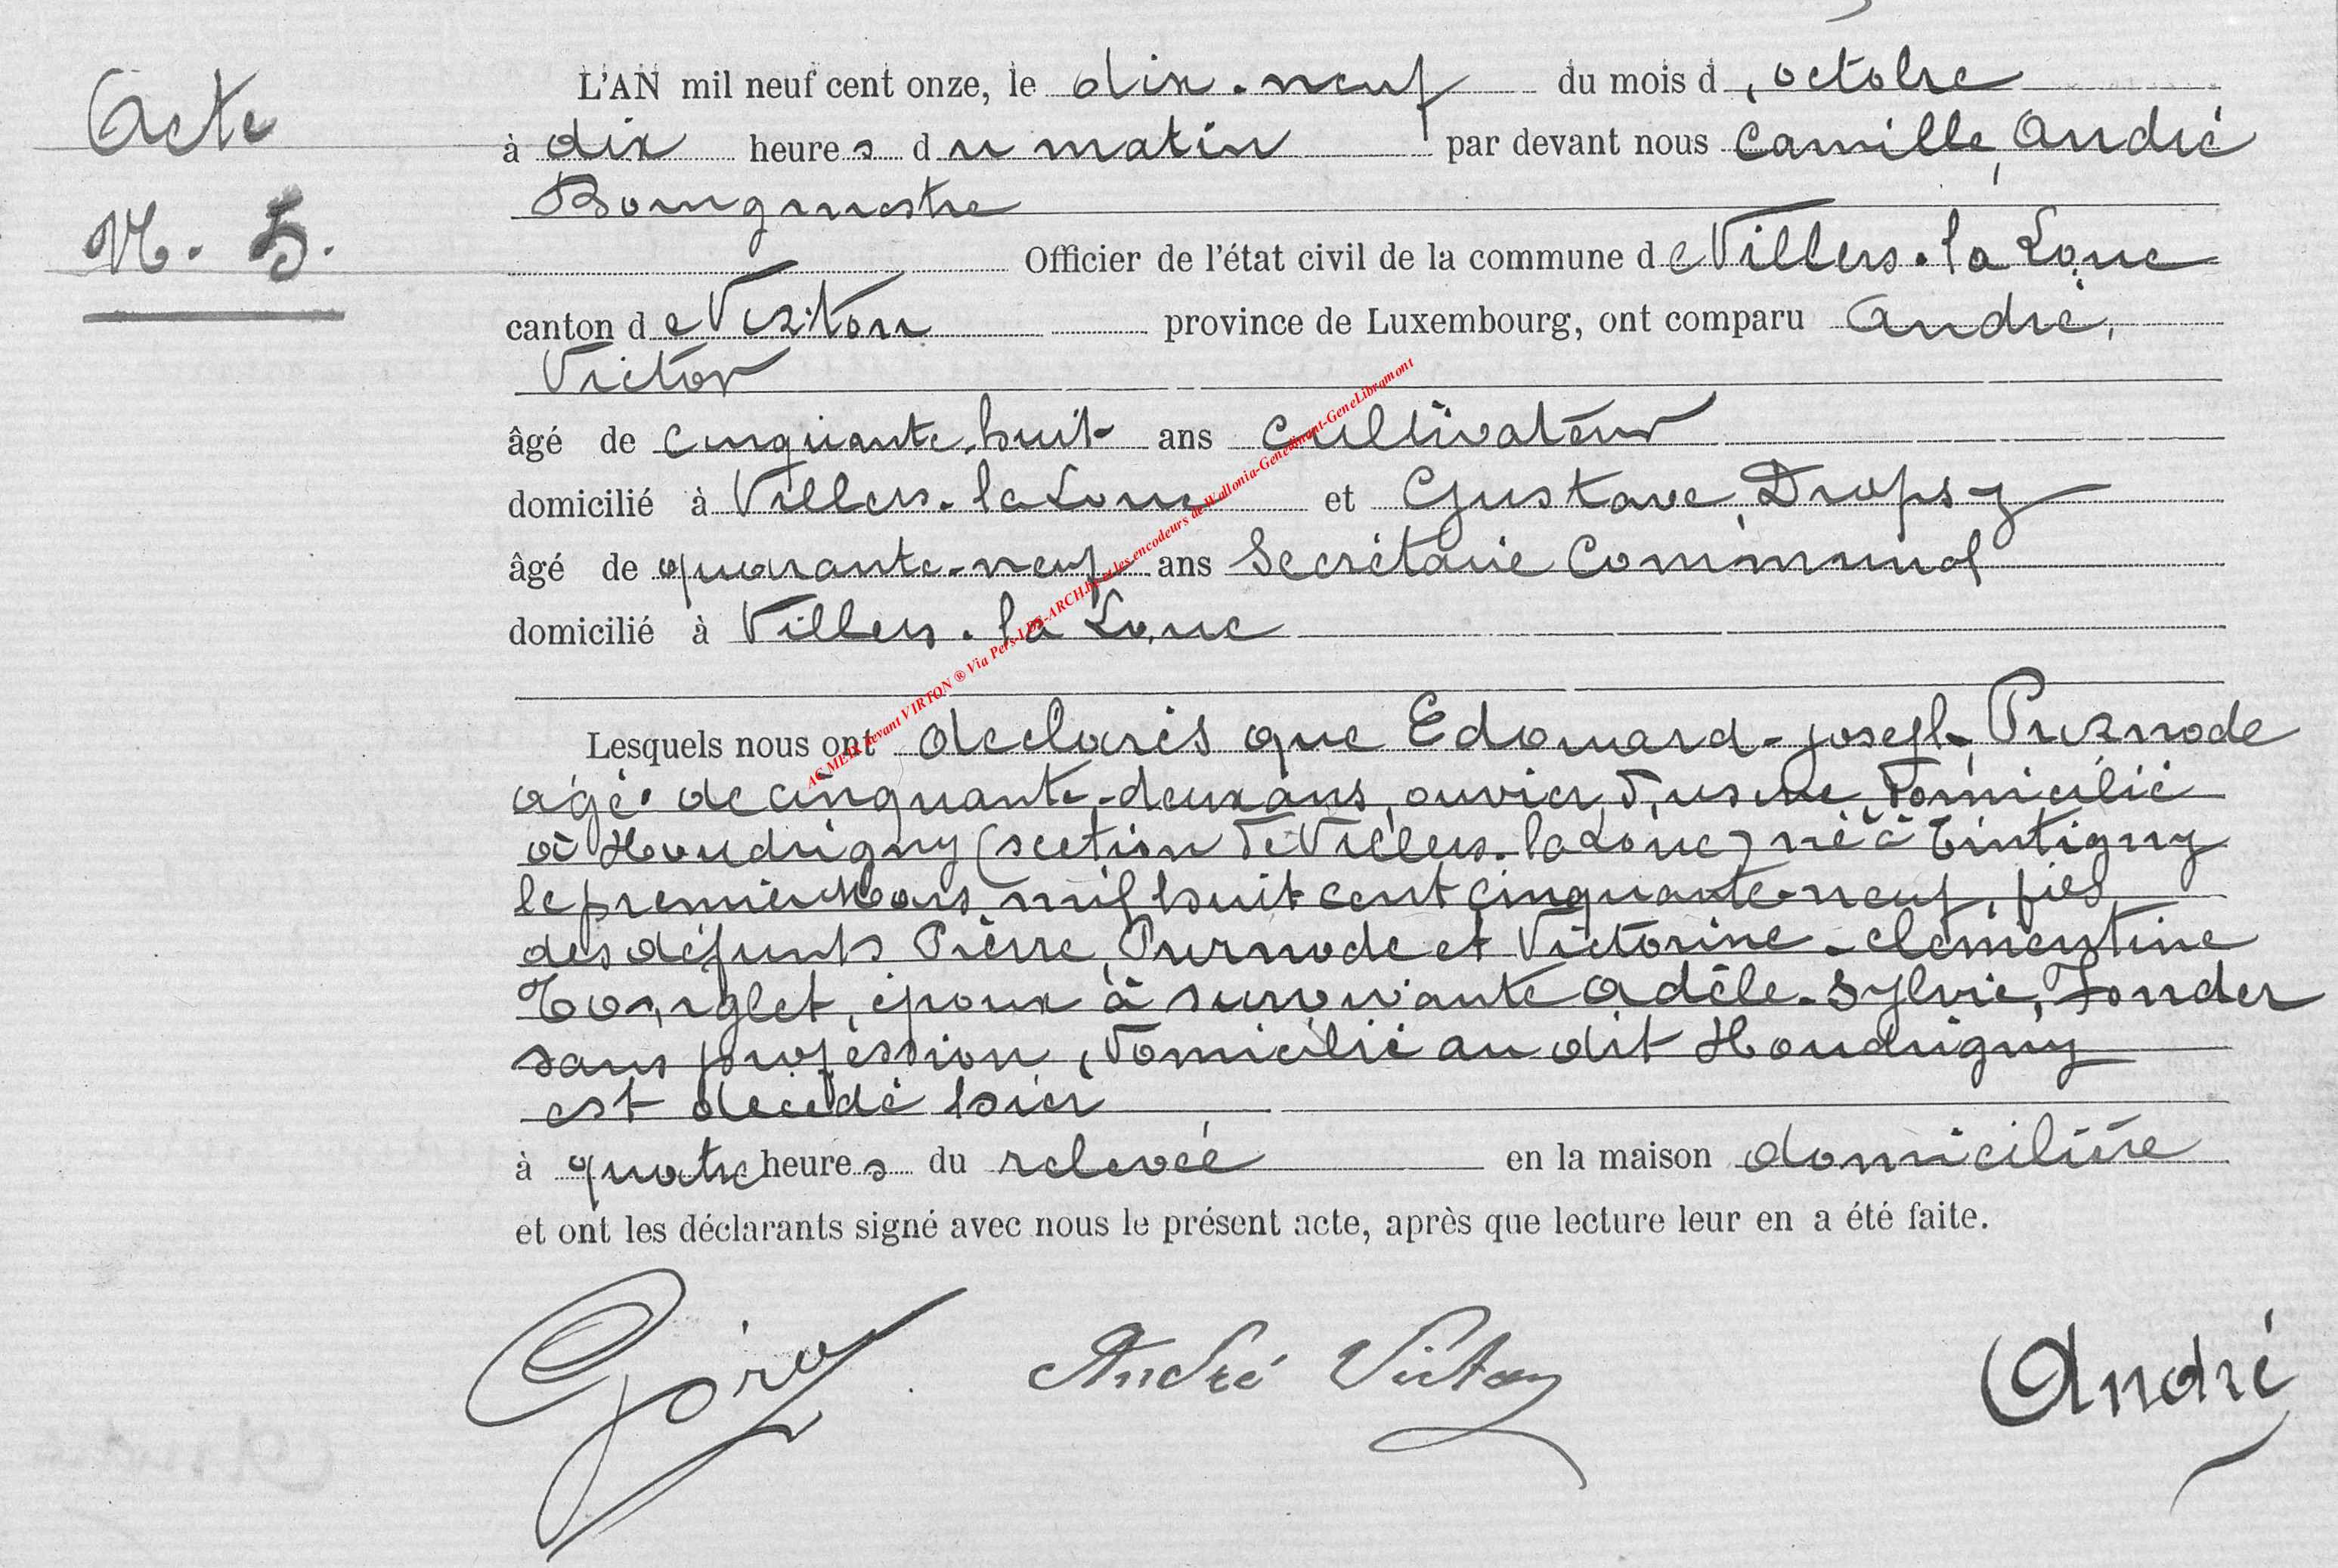 Acte
N. 5.
L'AN mil neuf cent onze, le dix-neuf du mois d'octobre
à dix heures du matin par devant nous Camille, André
Bourgmestre
Officier de l'état civil de la commune de Villers-la-Loue
canton de Virton province de Luxembourg, ont comparu André,
Victor
âgé de cinquante-huit ans cultivateur
domicilié à Villers-la Loue et Gustave, Dropsy
âgé de quarante-neuf ans Secrétaire Communal
domicilié à Villers-la Loue
Lesquels nous ont déclarés que Edouard-joseph, Purnode
agé de cinquante-deux ans, ouvrier d'usine, domicilié
à Houdrigny (section de Villers-la Loue) né à Tintigny
le premier Mars mil huit cent cinquante-neuf, fils
des défunts Pierre, Purnode et Victorine-clémentine
époux à survivante Adèle-Sylvie, Fonder
sans profession, domicilié au dit Houdrigny
est décédé hier
à quatre heures du relevée en la maison domicilière
et ont les déclarants signé avec nous le présent acte, après que lecture leur en a été faite.
André Victor
André
AC MEIX devant VIRTON ® Via Pers-LDS-ARCH.be et les encodeurs de Wallonia-Genedinant-GeneLibramont